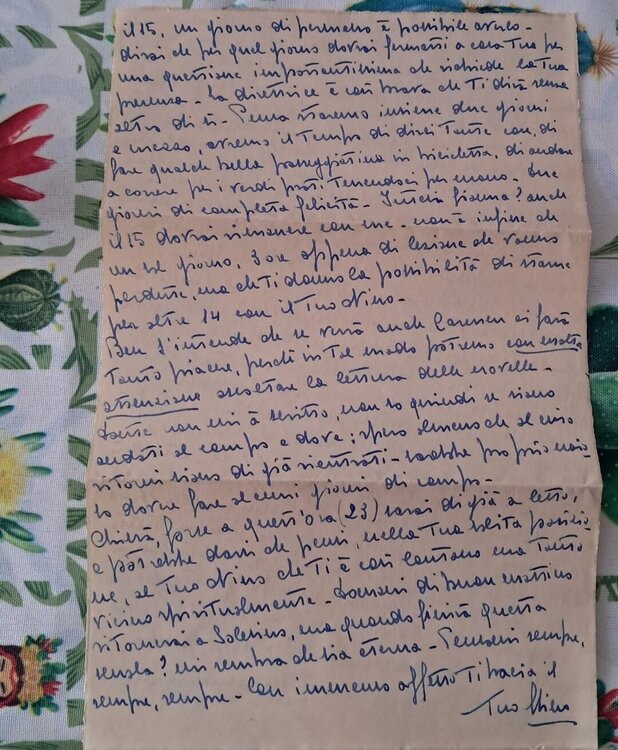 il 15, un giorno di permesso è possibile averlo -
dirai che per quel giorno dovrai fermarti a casa Tua per
una questione importantissima che richiede la Tua
presenza - La direttrice è così brava che Ti dirà senza
altro di sì - Pensa staremo insieme due giorni
e mezzo, avremo il Tempo di dirci Tante cose, di
fare qualche bella passeggiatina in bicicletta, di andare
a correre per i verdi prati Tenendoci per mano - due
giorni di completa felicità - gioia? anche
il 15 dovrai rimanere con me - non è infine che
un sol giorno, 3 ore appena di lezione che vanno
perdute, ma che Ti danno la possibilità di stare
per altre 14 con il Tuo Nino -
Ben s'intende che se verrà anche Carmen ci farà
Tanto piacere, perché in Tal modo potremo con molta
attenzione ascoltare la lettura delle novelle -
non mi à scritto, non so quindi se siano
andati al campo e dove; spero almeno che al mio
ritorno siano di già rientrati - sarebbe proprio noio-
so dover fare alcuni giorni di campo -
Chissà, forse a quest'ora (23) sarai di già a letto,
e potrebbe darsi che pensi, nella Tua solita posizio-
ne, al Tuo Nino che Ti è così lontano ma Tanto
vicino spiritualmente - Domani di buon mattino
ritornerai a Solesino, ma quando finirà questa
scuola? mi sembra che sia eterna - Pensami sempre,
sempre, sempre - Con immenso affetto Ti bacia il
Tuo Nino